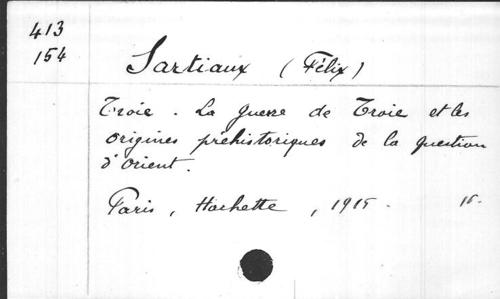 413
154
Sartiaux (Félix)
Troie. La guerre de Troie et les
origines préhistoriques de la question
d'Orient.
Paris, Hachette, 1915. 16.